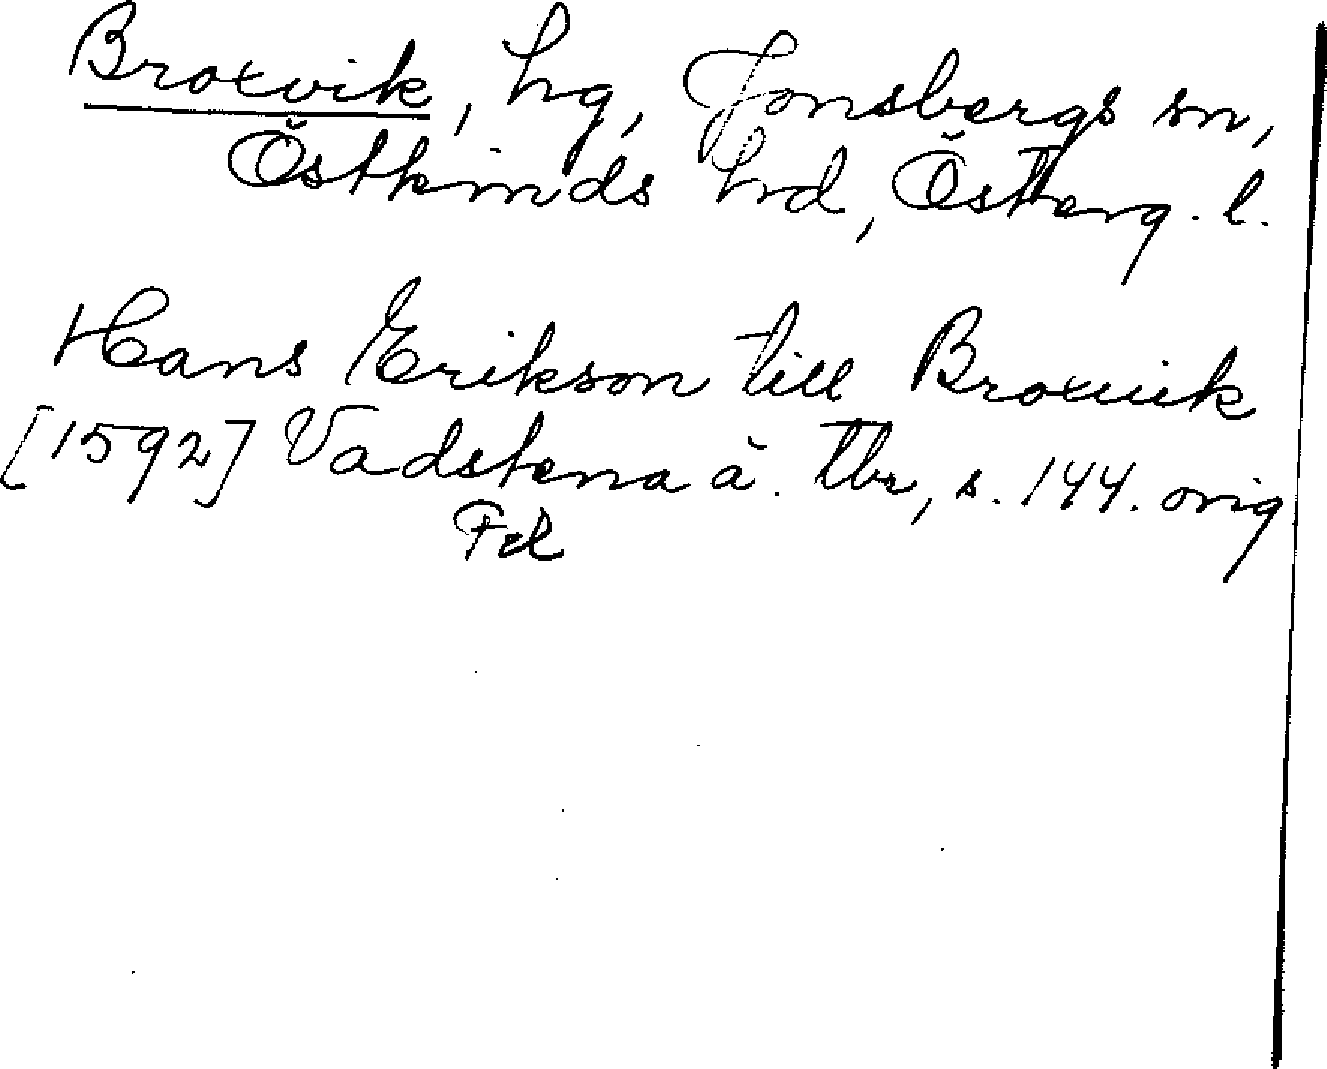 Broxvik, hg, Jonsbergs sn,
Östkinds hd, Österg. l.
Hans Erikson till Broxuik
[1592] Vadstena ä. tbr, s. 144. orig